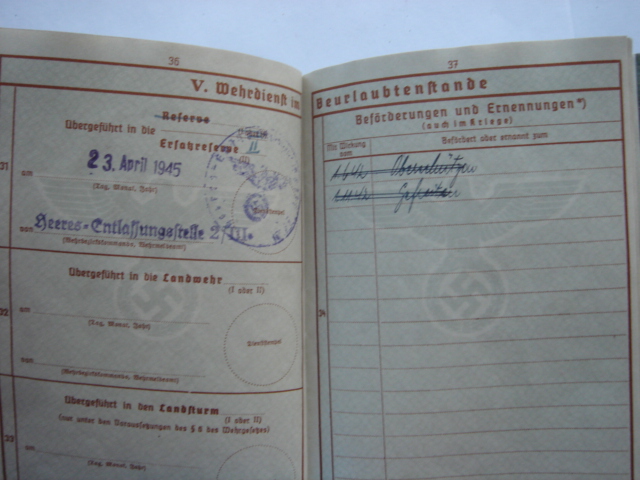 36
V. Wehrdienst im
Reserve
Übergeführt in die
Ersatzreserve II
31
am 23. April 1945
(Tag, Monat, Jahr)
von Heeres-Entlassungsstelle 2/III.
(Wehrbezirkskommando, Wehrmeldeamt)
Übergeführt in die Landwehr
(I oder II)
32
am
(Tag, Monat, Jahr)
Dienststempel
von
(Wehrbezirkskommando, Wehrmeldeamt)
Übergeführt in den Landsturm
(I oder II)
(nur unter den Voraussetzungen des § 8 des Wehrgesetzes)
33
am
(Tag, Monat, Jahr)
37
Beurlaubtenstande
Beförderungen und Ernennungen*)
(auch im Kriege)
Mit Wirkung vom
Befördert oder ernannt zum
Oberschützen
Gefreiten
34